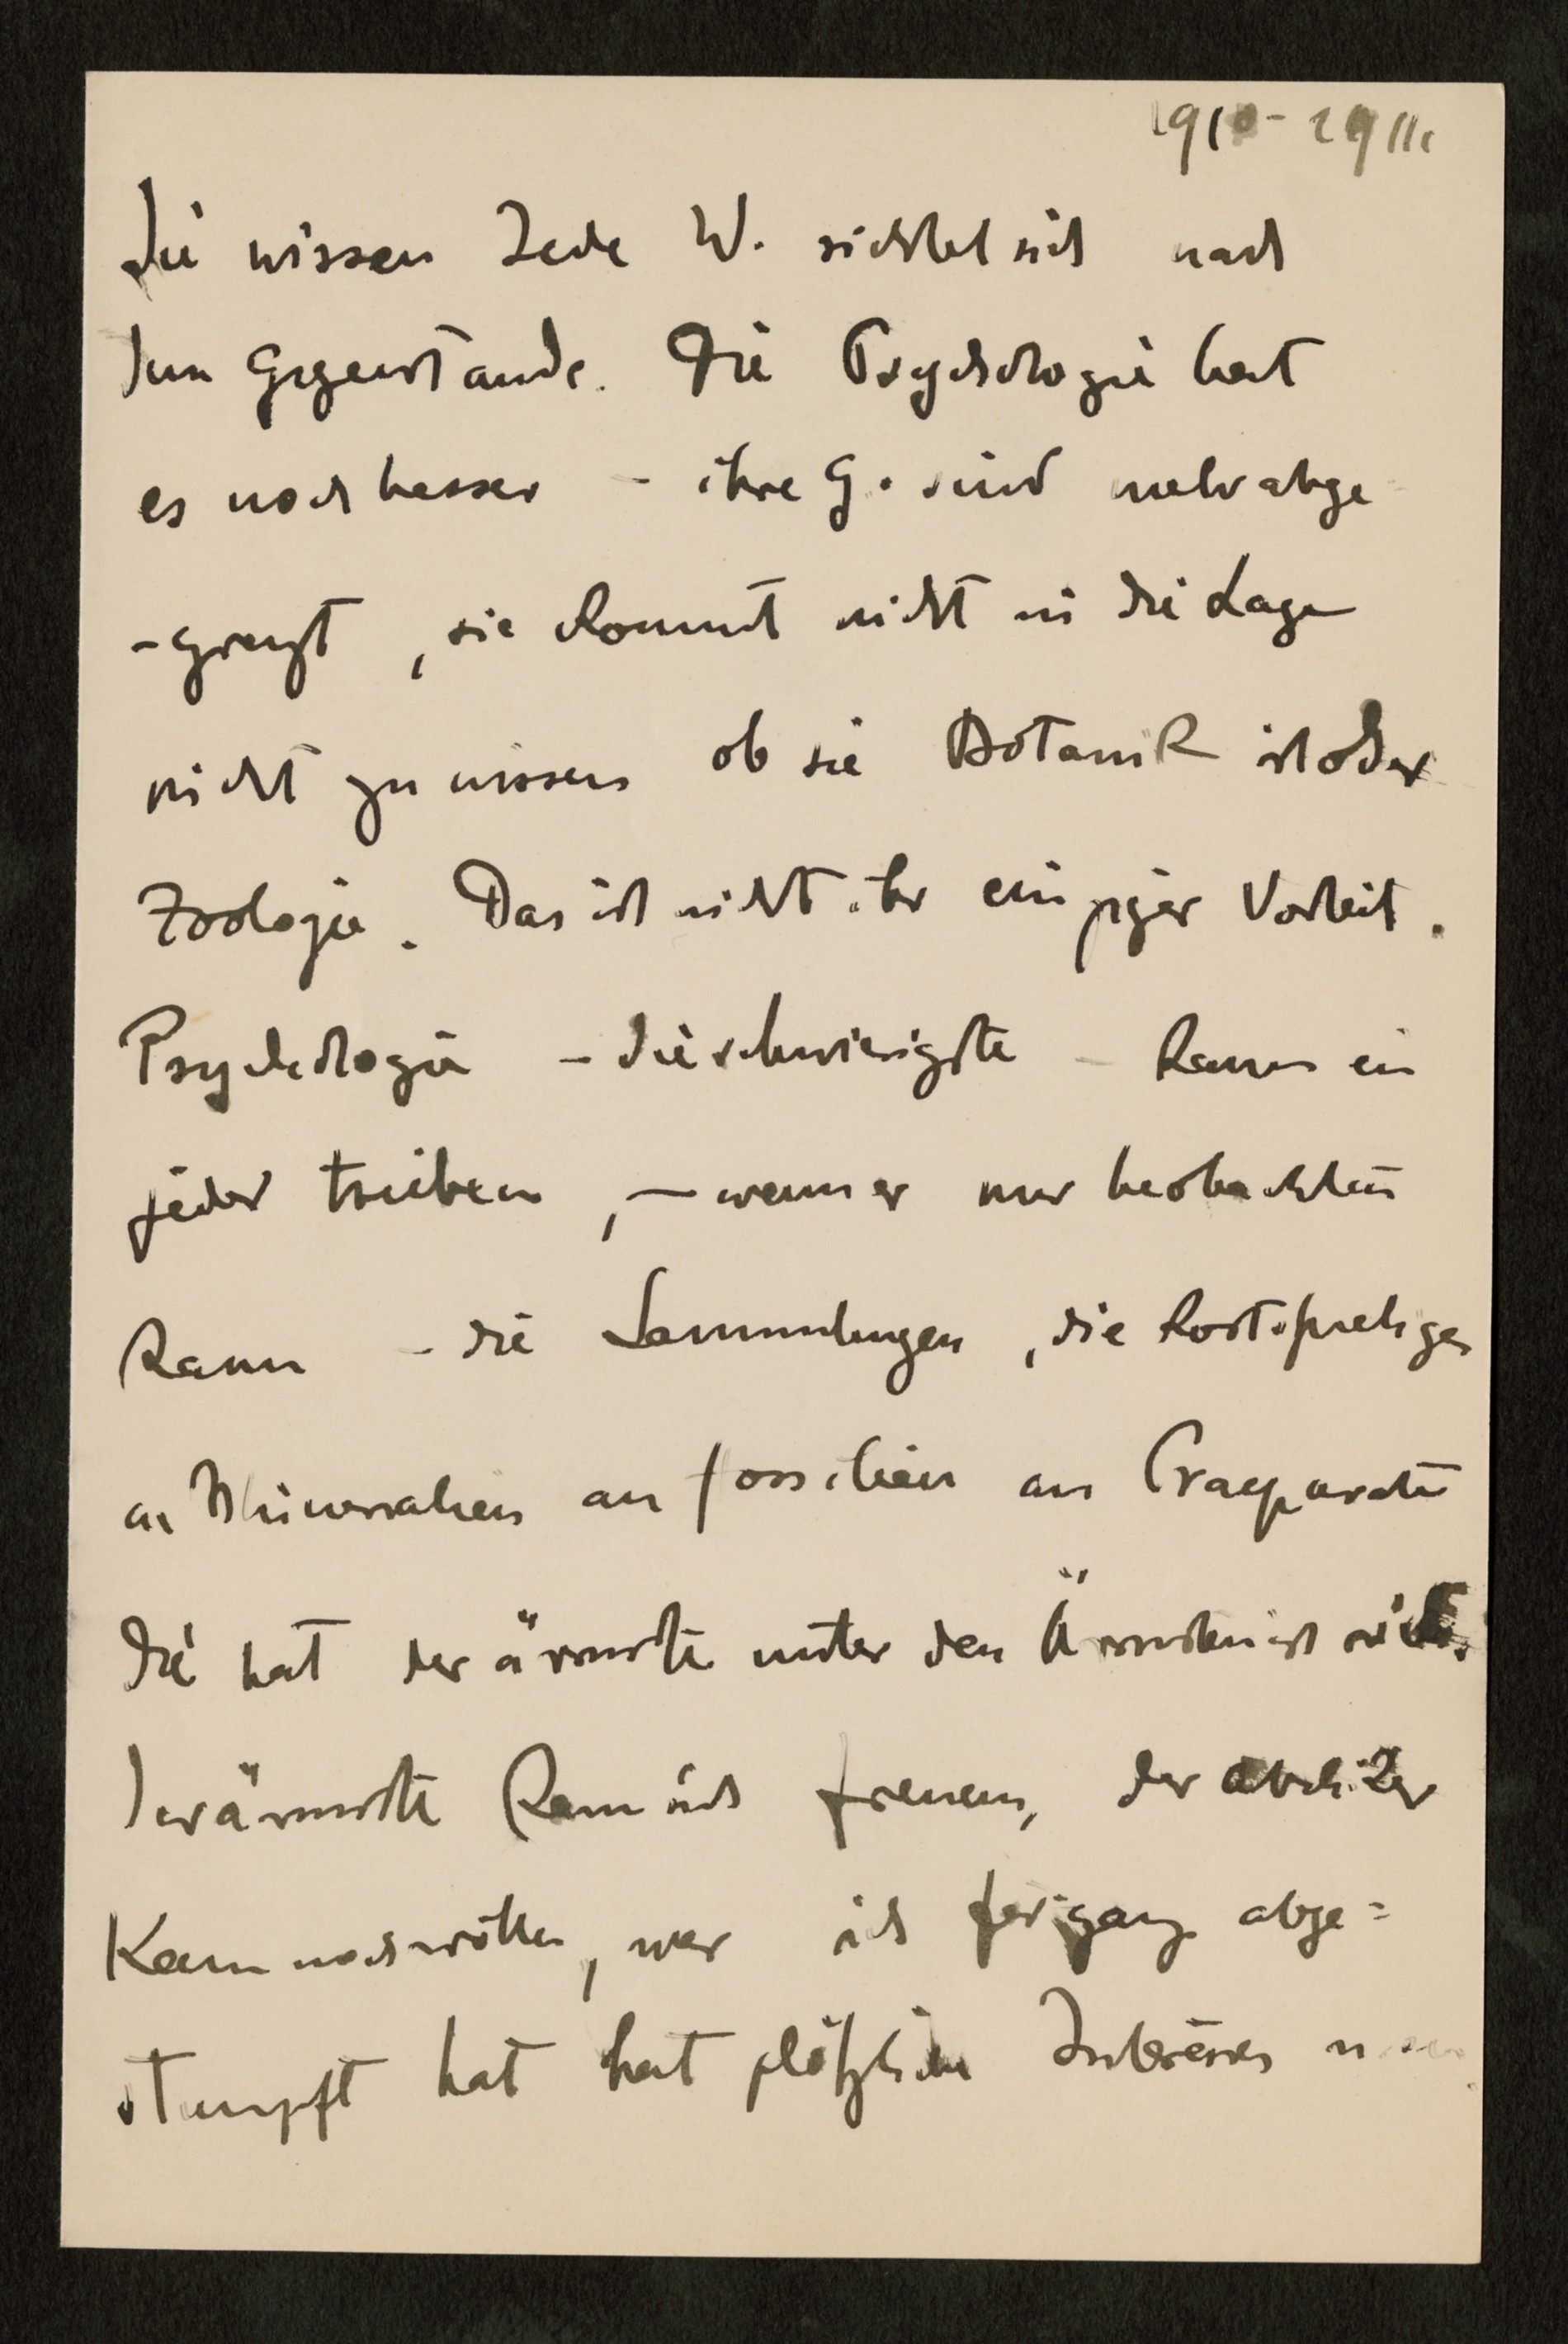 1910-1911
Sie wissen Jede W. richtet sich nach
dem Gegenstande. Die Psychologie hat
es noch besser - ihre G. sind mehr abge
-grenzt, sie kommt nicht in die Lage
nicht zu wissen ob sie Botanik ist oder
Zoologie. Das ist nicht ihr einziger Vorteil.
Psychologie - die schwierigste - kann ein
jeder treiben, - wenn er nur beobachten
kann - die Sammlungen, die kostspieligen
an Mineralien an fossilien an Praeparaten
die hat der ärmste unter den Ärmsten
der ärmste kann sich freuen, der
Kann noch wollen, wer sich abge=
stumpft hat hat plötzlich Interesse